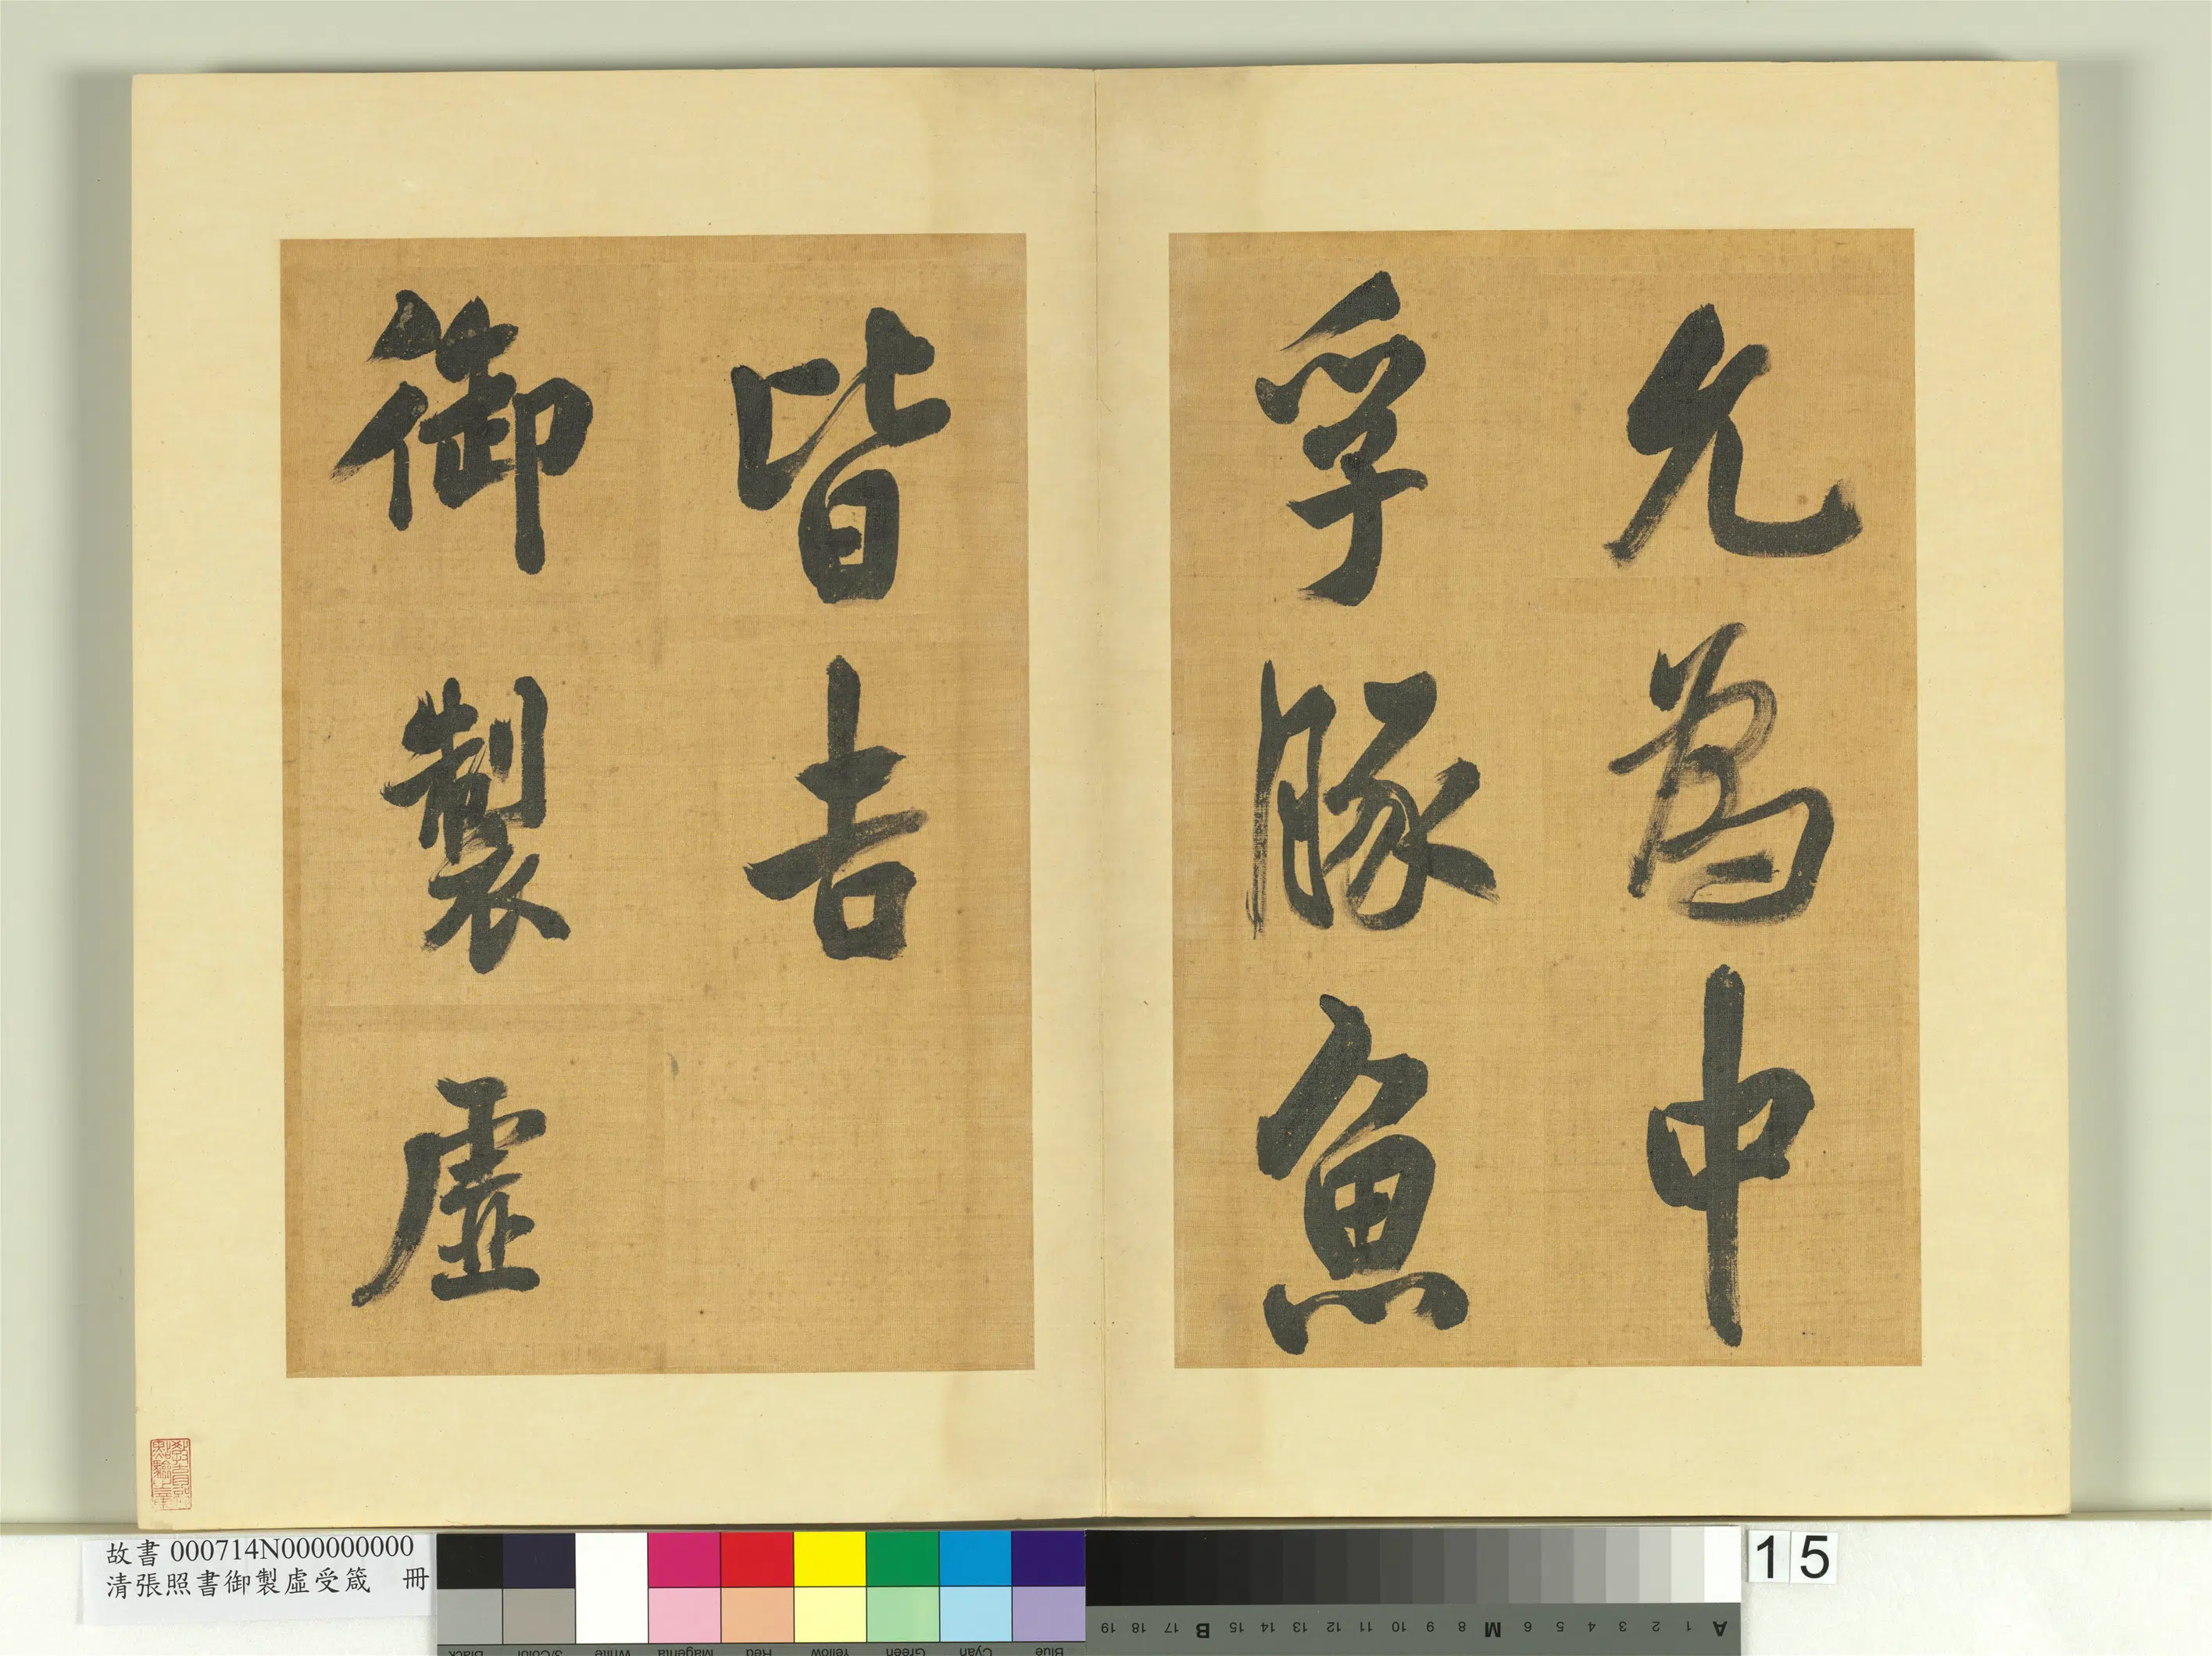 允為中
孚豚魚
皆吉
御製虛
故書 000714N000000000
清張照書御製虛受箴 冊
15
Black 3/Color White Magenta Red Yellow Green Cyan Blue
A 1 2 3 4 5 6 M 8 9 10 11 12 13 14 15 B 17 18 19